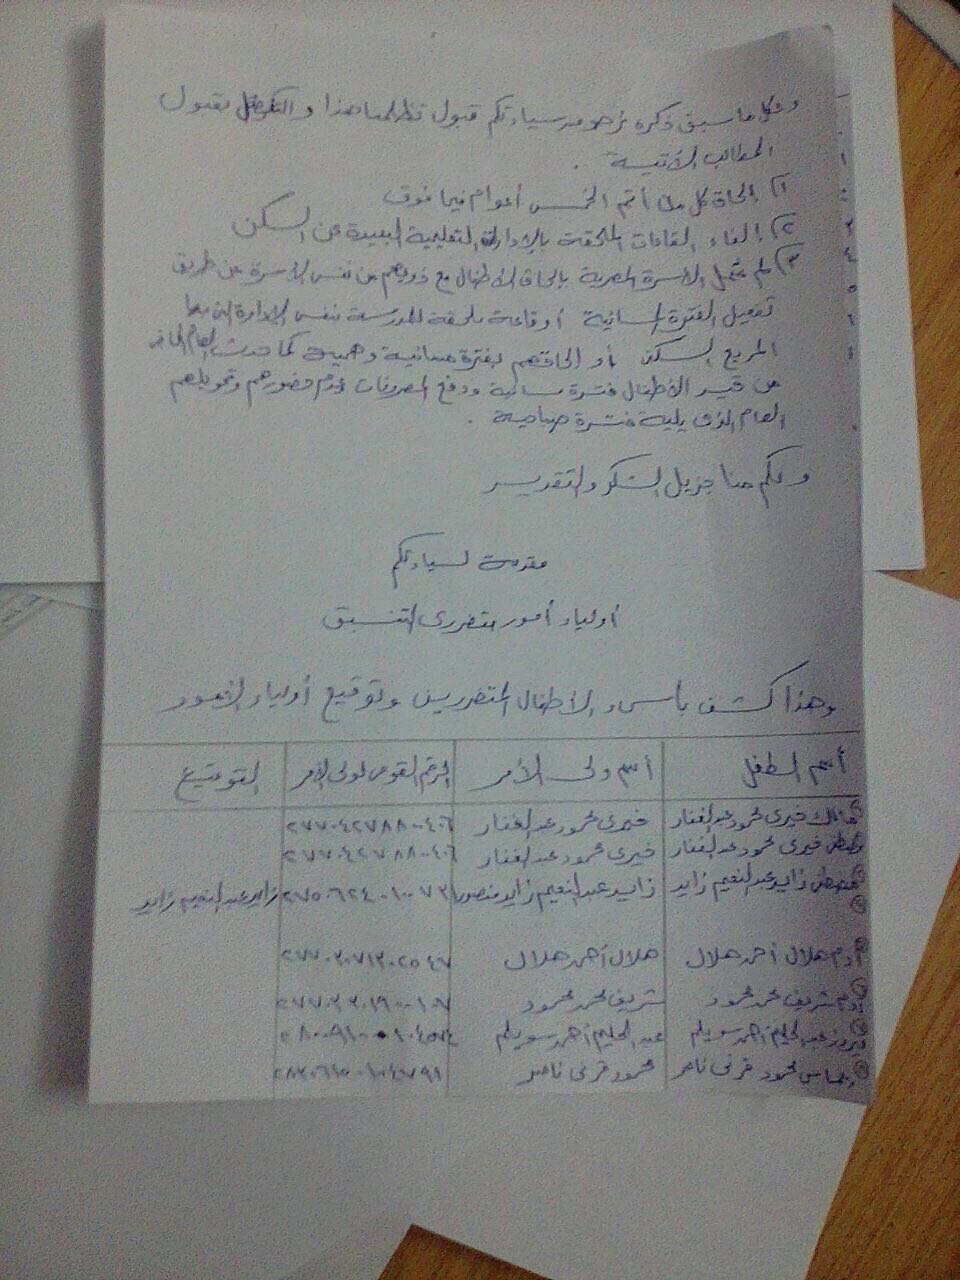 وعلى ما سبق ذكره نرجو من سيادتكم قبول تظلمنا هذا والتكرم بقبول
المطالب الآتية .
١) إلحاق كل من أتم الخمس أعوام فيما فوق
٢) إلغاء القاعات الملحقة بالإدارة التعليمية البعيدة عن السكن
٣) لم شمل الأسرة المصرية بإلحاق الأطفال مع ذويهم من نفس الأسرة عن طريق
تفعيل الفترة المسائية أو قاعة ملحقة للمدرسة بنفس الإدارة التى بها
المربع السكنى أو إلحاقهم بفترة مسائية وهمية كما حدث العام الماضى
من قيد الأطفال فترة مسائية ودفع المصروفات وعدم حضورهم وتحويلهم
العام الذى يلية فترة صباحية .
ولكم منا جزيل الشكر والتقدير
مقدمة لسيادتكم
أولياء أمور متضررى التنسيق
وهذا كشف بأسماء الأطفال المتضررين وتوقيع أولياء الأمور
أسم الطفل أسم ولى الأمر الرقم القومى لولى الأمر التوقيع
خيرى محمود عبد الغفار خيرى محمود عبد الغفار
خيرى محمود عبد الغفار خيرى محمود عبد الغفار
زايد عبد النعيم زايد زايد عبد النعيم زايد منصور زايد عبد النعيم زايد
أدم هلال أحمد هلال هلال أحمد هلال
أدم شريف محمد محمود شريف محمد محمود
عبد الحليم أحمد سويلم عبد الحليم أحمد سويلم
محمود قرنى ناصر محمود قرنى ناصر